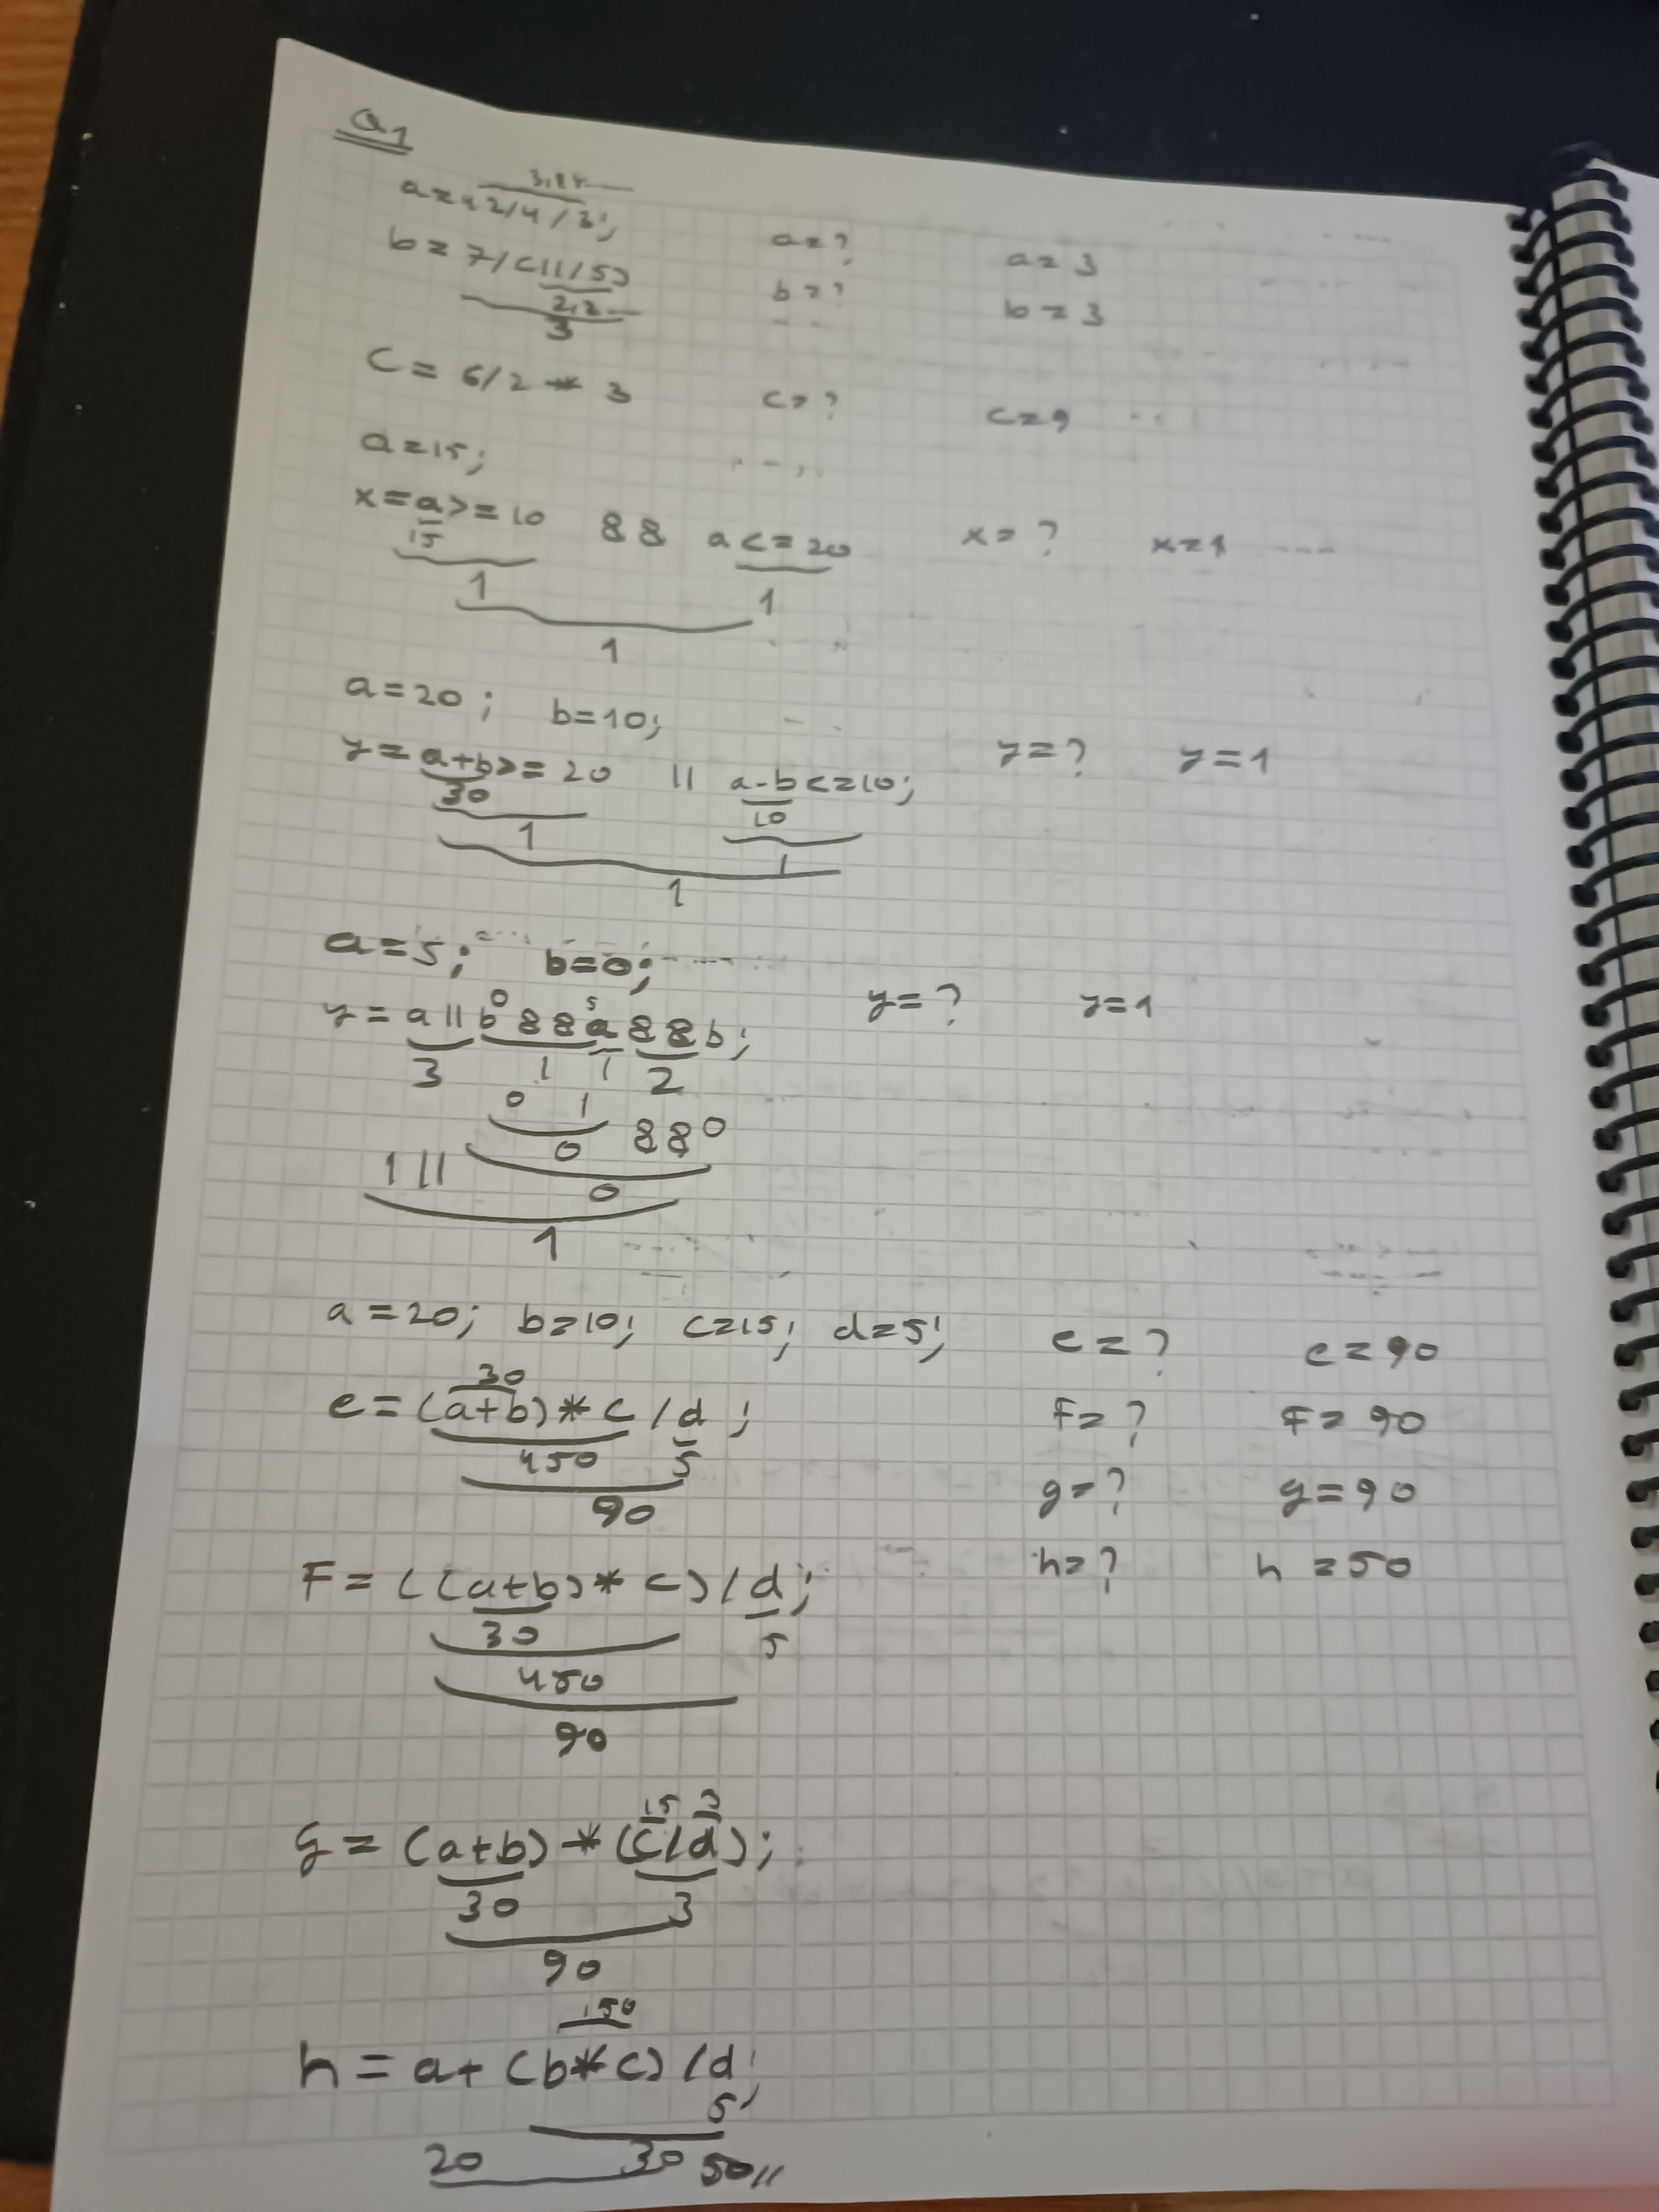 Q1
3,8
a=42/4/3; a=? a=3
b=7/(11/5) b=? b=3
2,2
3
C = 6/2 * 3 c=? c=9
a=15;
x=a>=10 && a<=20 x=? x=1
15
1 1
1
a=20; b=10;
y=a+b>=20 || a-b<=10; y=? y=1
30 10
1 1
1
a=5; b=0;
0 5
y=a||b&&a&&b; y=? y=1
3 1 1 2
0 1
0 &&0
1 || 0
1
a=20; b=10; c=15; d=5; e=? e=90
30
e=(a+b)*c/d; F=? F=90
450 5
90 g=? g=90
F=((a+b)*c)/d; h=? h=50
30 5
450
90
15
g=(a+b)*(c/d);
30 3
90
150
h=a+(b*c)/d;
5
20 30 50//